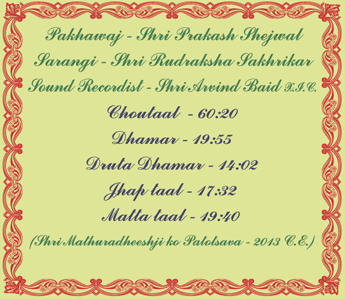 Pakhawaj - Shri Prakash Shejwal
Sarangi - Shri Rudraksha Sakhrikar
Sound Recordist - Shri Arvind Baid X.I.C.
Choutaal - 60:20
Dhamar - 19:55
Druta Dhamar - 14:02
Jhap taal - 17:32
Matta taal - 19:40
(Shri Mathuradheeshji ko Patotsava - 2013 C.E.)